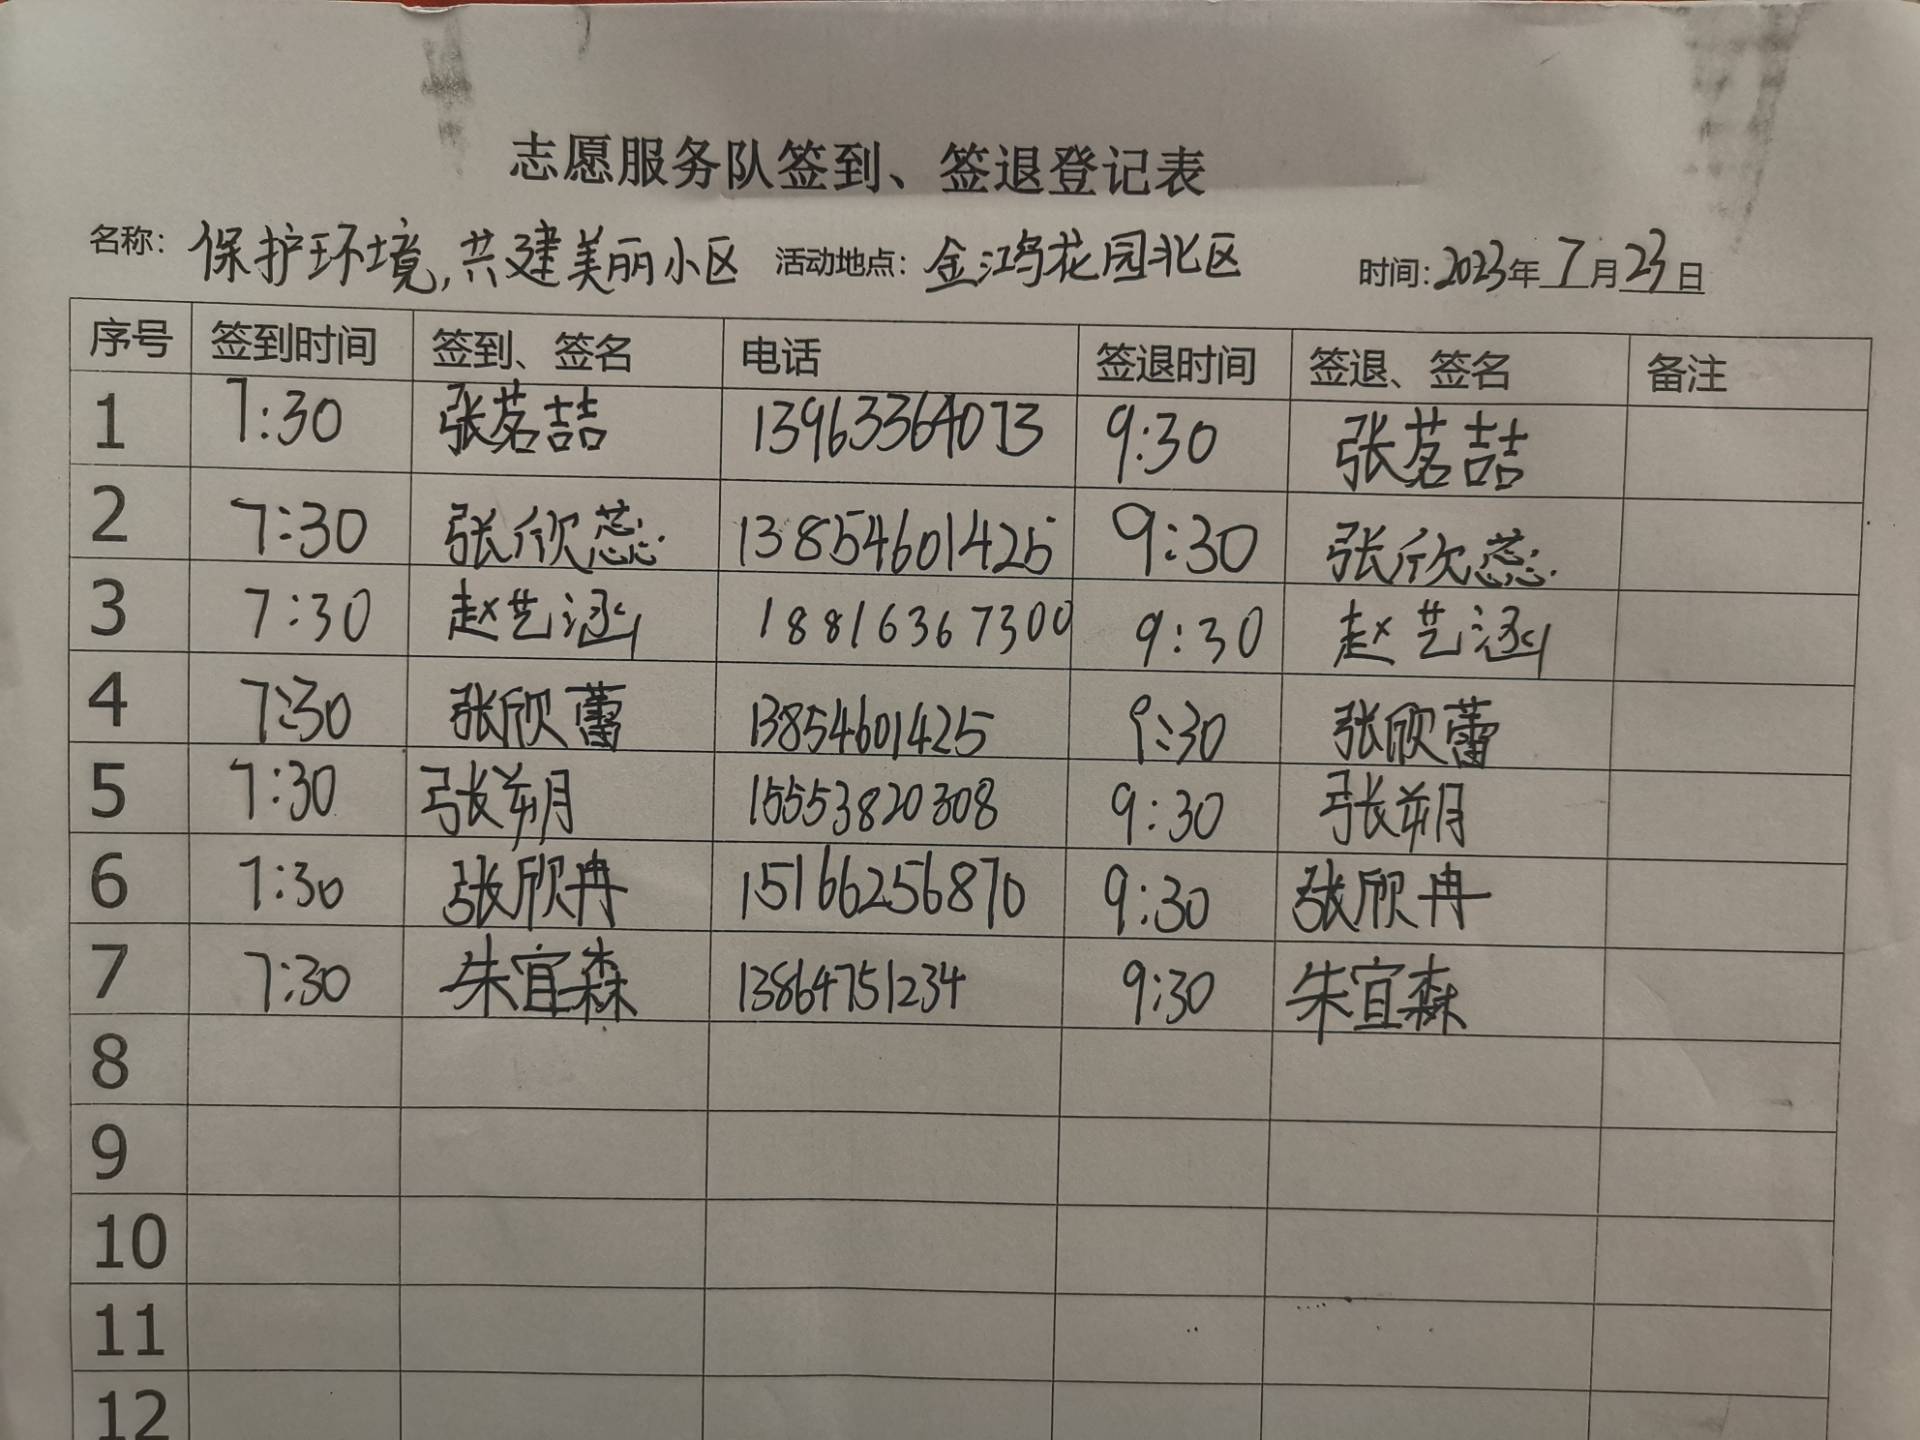 志愿服务队签到、签退登记表
名称：保护环境，共建美丽小区 活动地点：金鸿花园北区 时间：2023年7月23日
序号 签到时间 签到、签名 电话 签退时间 签退、签名 备注
1 7:30 张茗喆 13963364073 9:30 张茗喆
2 7:30 张欣蕊 13854601425 9:30 张欣蕊
3 7:30 赵艺涵 18816367300 9:30 赵艺涵
4 7:30 张欣蕾 13854601425 9:30 张欣蕾
5 7:30 张朔 15553820308 9:30 张朔
6 7:30 张欣冉 15166256870 9:30 张欣冉
7 7:30 朱宜森 13864751234 9:30 朱宜森
8
9
10
11
12